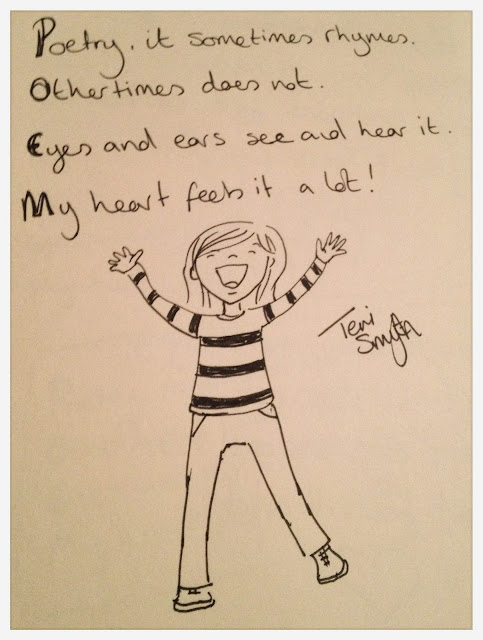 Poetry, it sometimes rhymes.
Othertimes does not.
Eyes and ears see and hear it.
My heart feels it a lot!
Teri
Smyth